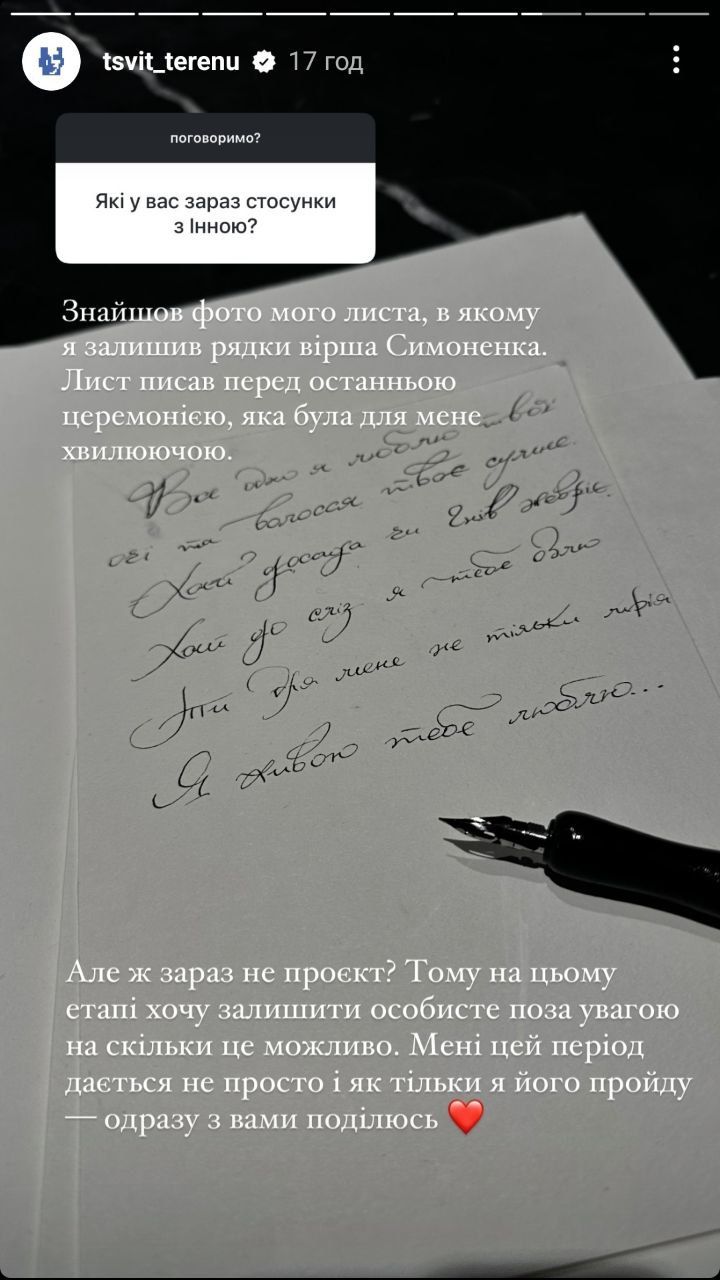 tsvit_terenu 17 год
поговоримо?
Які у вас зараз стосунки
з Інною?
Знайшов фото мого листа, в якому
я залишив рядки вірша Симоненка.
Лист писав перед останньою
церемонією, яка була для мене
хвилюючою.
Все одно я люблю твої
очі та волосся твоє сумне.
Хай досада чи гнів жевріє
Хай до сліз я тебе озлю
Ти для мене не тільки мрія
Я живою тебе люблю...
Але ж зараз не проєкт? Тому на цьому
етапі хочу залишити особисте поза увагою
на скільки це можливо. Мені цей період
дається не просто і як тільки я його пройду
— одразу з вами поділюсь ❤️